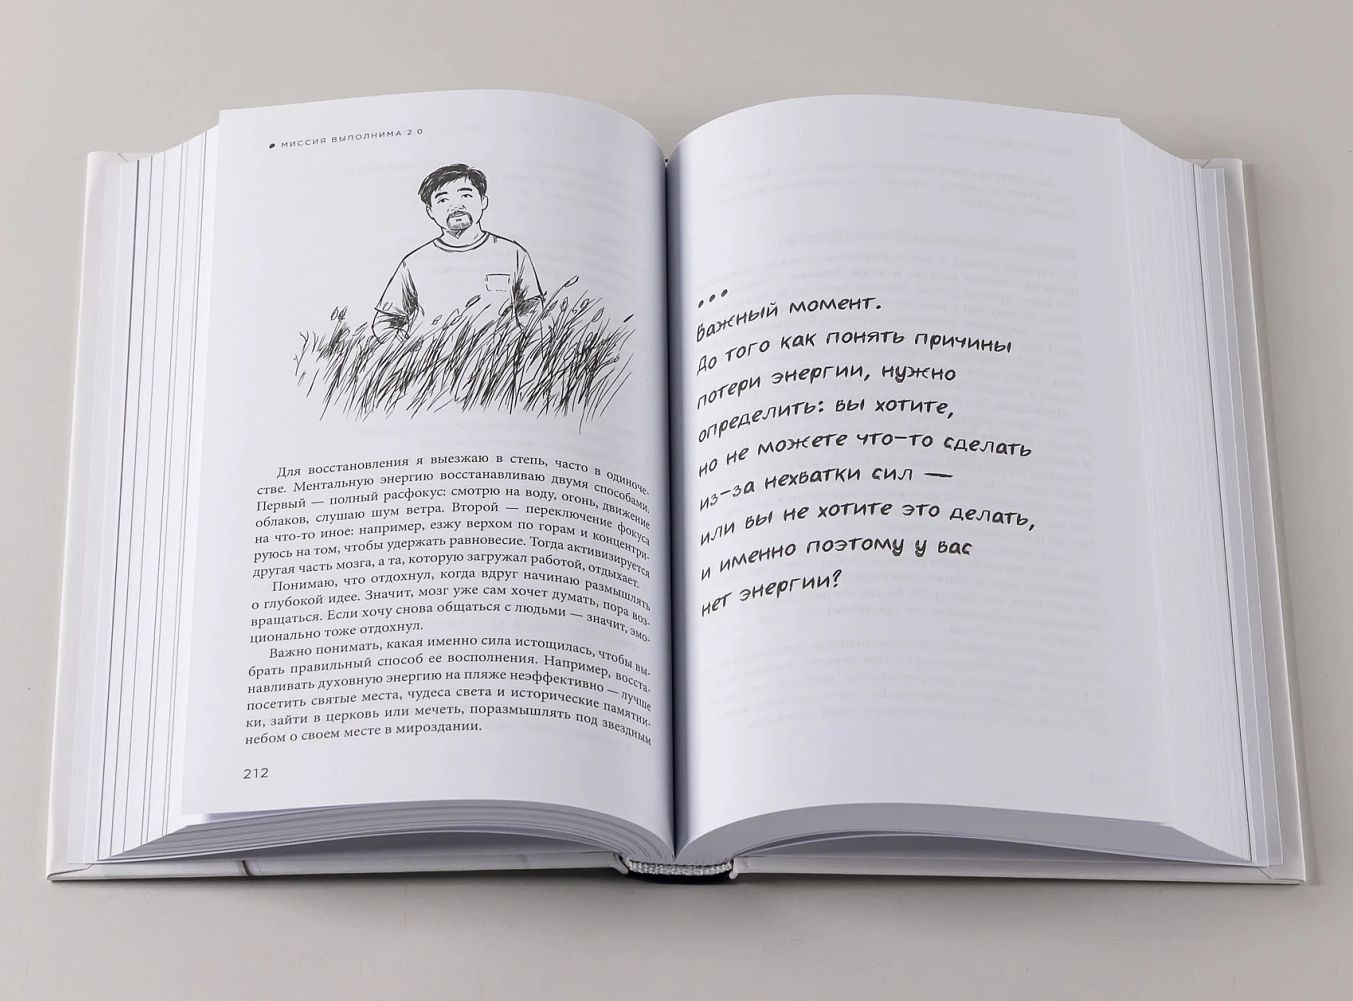 МИССИЯ ВЫПОЛНИМА 2.0
Для восстановления я выезжаю в степь, часто в одиноче-
стве. Ментальную энергию восстанавливаю двумя способами.
Первый — полный расфокус: смотрю на воду, огонь, движение
облаков, слушаю шум ветра. Второй — переключение фокуса
на что-то иное: например, езжу верхом по горам и концентри-
руюсь на том, чтобы удержать равновесие. Тогда активизируется
другая часть мозга, а та, которую загружал работой, отдыхает.
Понимаю, что отдохнул, когда вдруг начинаю размышлять
о глубокой идее. Значит, мозг уже сам хочет думать, пора воз-
вращаться. Если хочу снова общаться с людьми — значит, эмо-
ционально тоже отдохнул.
Важно понимать, какая именно сила истощилась, чтобы вы-
брать правильный способ ее восполнения. Например, восста-
навливать духовную энергию на пляже неэффективно — лучше
посетить святые места, чудеса света и исторические памятни-
ки, зайти в церковь или мечеть, поразмышлять под звездным
небом о своем месте в мироздании.
212
Важный момент.
До того как понять причины
потери энергии, нужно
определить: вы хотите,
но не можете что-то сделать
из-за нехватки сил —
или вы не хотите это делать,
и именно поэтому у вас
нет энергии?